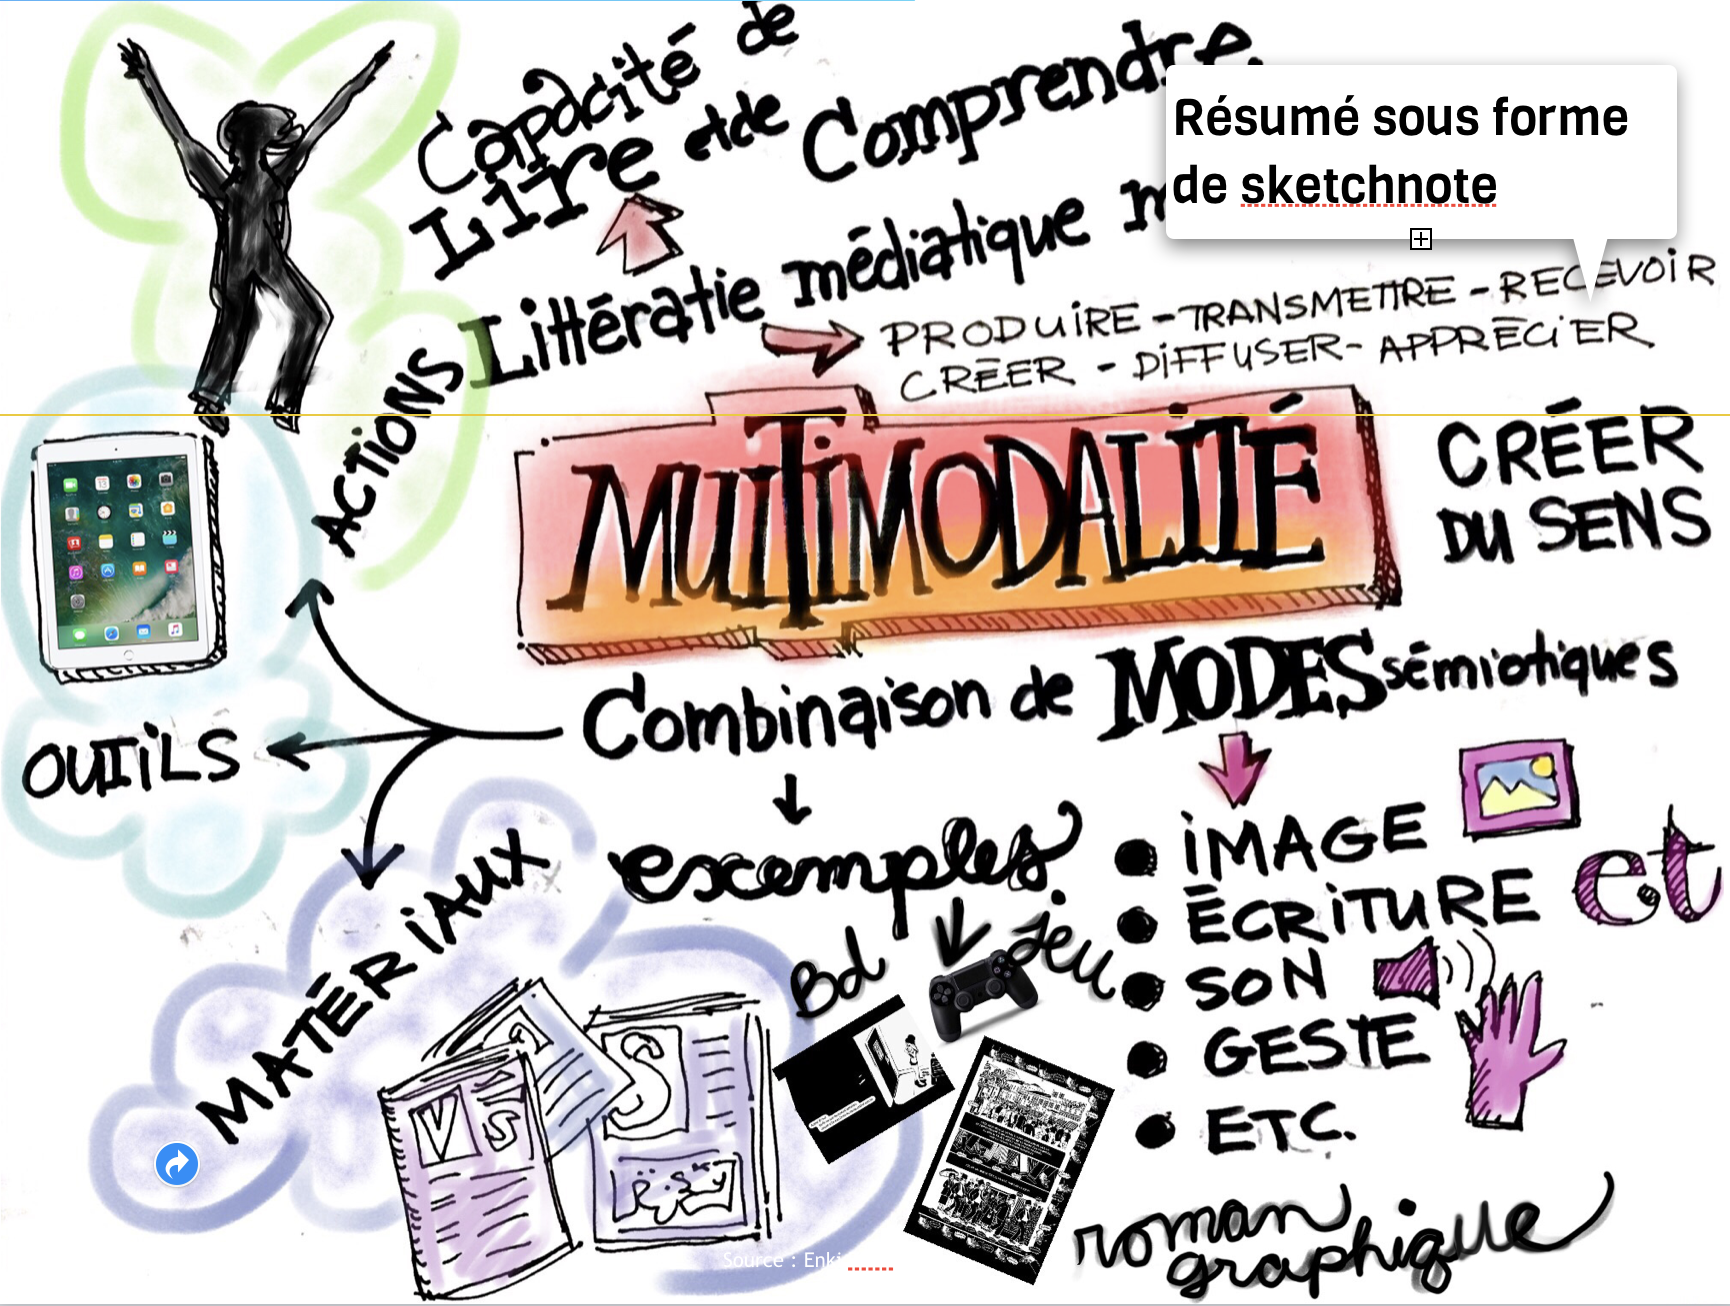 Capacité de
Lire et de Comprendre
Résumé sous forme
de sketchnote
Littératie médiatique m
PRODUIRE - TRANSMETTRE - RECEVOIR
CRÉER - DIFFUSER - APPRÉCIER
ACTIONS
MULTIMODALITÉ
CRÉER
DU SENS
Combinaison de MODES sémiotiques
OUTILS
MATÉRIAUX
exemples
Bd
jeu
roman
graphique
• IMAGE
• ÉCRITURE
• SON
• GESTE
• ETC.
et
Source : Enki